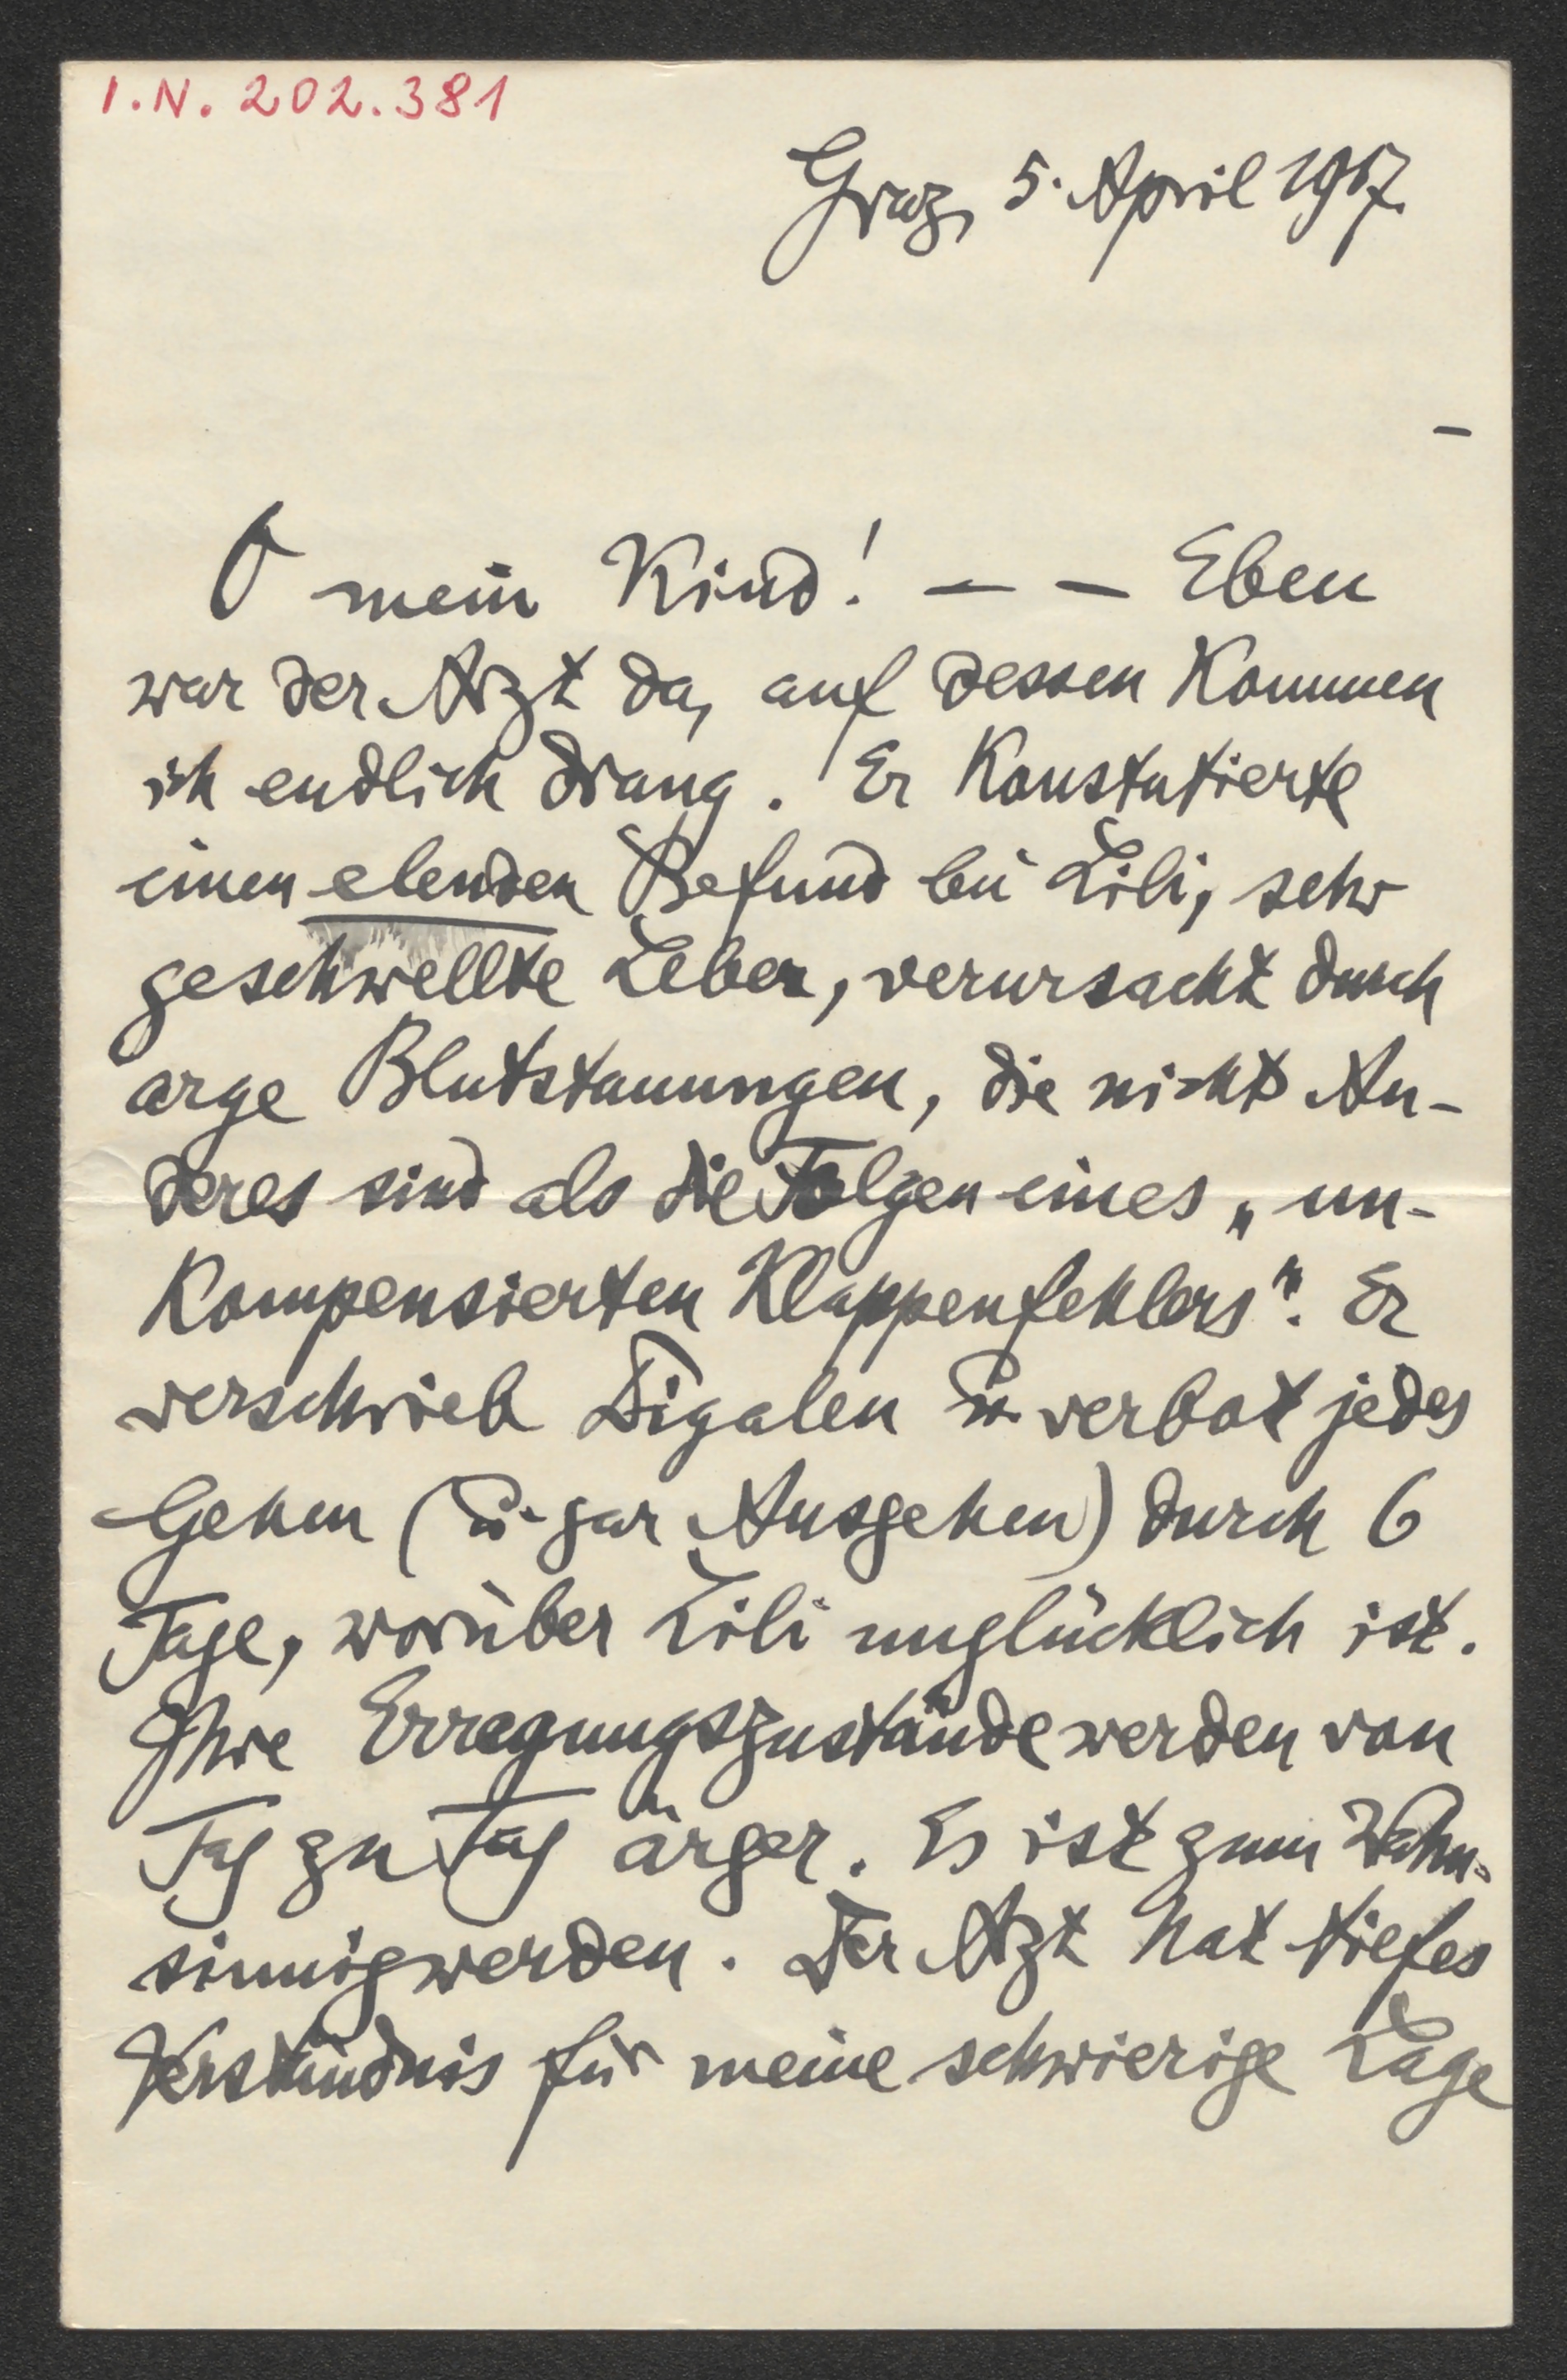 I.N. 202.381
Graz, 5. April 1917.
O mein Kind! — — Eben
war der Arzt da, auf dessen Kommen
ich endlich drang. Er Konstatierte
einen elenden Befund bei Lili, sehr
geschwellte Leber, verursacht durch
arge Blutstauungen, die nicht An-
deres sind als die Folgen eines „un-
Kompensierten Klappenfehlers". Er
verschrieb Digalen u. verbot jedes
Gehen (u. gar Ausgehen) durch 6
Tage, worüber Lili unglücklich ist.
Ihre Erregungszustände werden von
Tag zu Tag ärger. Es ist zum Wahn-
sinnigwerden. Der Arzt hat tiefes
Verständnis für meine schwierige Lage